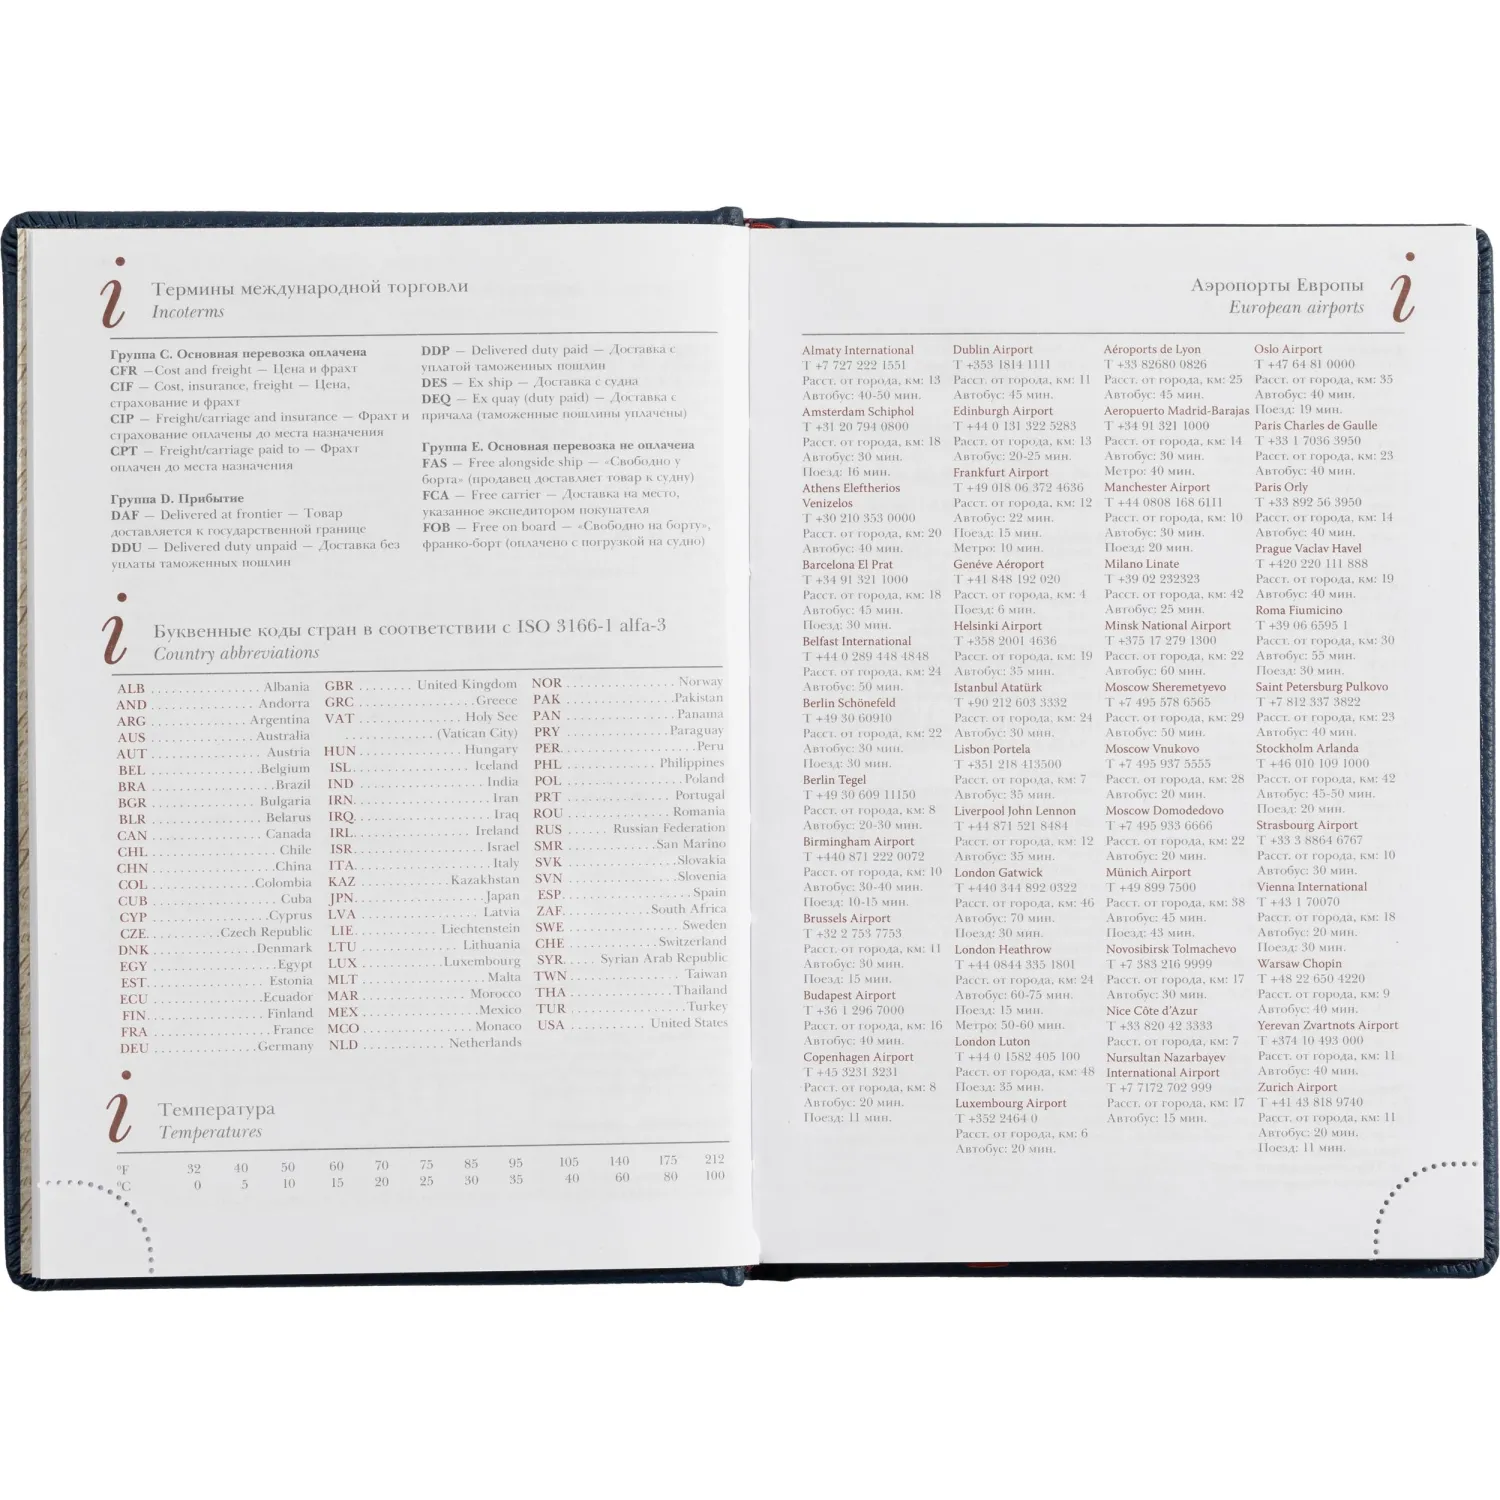 i
Термины международной торговли
Incoterms
Группа C. Основная перевозка оплачена
CFR —Cost and freight — Цена и фрахт
CIF — Cost, insurance, freight — Цена,
страхование и фрахт
CIP — Freight/carriage and insurance — Фрахт и
страхование оплачены до места назначения
CPT — Freight/carriage paid to — Фрахт
оплачен до места назначения
Группа D. Прибытие
DAF — Delivered at frontier — Товар
доставляется к государственной границе
DDU — Delivered duty unpaid — Доставка без
уплаты таможенных пошлин
DDP — Delivered duty paid — Доставка с
уплатой таможенных пошлин
DES — Ex ship — Доставка с судна
DEQ — Ex quay (duty paid) — Доставка с
причала (таможенные пошлины уплачены)
Группа E. Основная перевозка не оплачена
FAS — Free alongside ship — «Свободно у
борта» (продавец доставляет товар к судну)
FCA — Free carrier — Доставка на место,
указанное экспедитором покупателя
FOB — Free on board — «Свободно на борту»,
франко-борт (оплачено с погрузкой на судно)
i
Буквенные коды стран в соответствии с ISO 3166-1 alfa-3
Country abbreviations
ALB ................ Albania
AND ................ Andorra
ARG ............... Argentina
AUS ................ Australia
AUT ................ Austria
BEL ................ Belgium
BRA ................ Brazil
BGR ................ Bulgaria
BLR ................ Belarus
CAN ................ Canada
CHL ................ Chile
CHN ................ China
COL ................ Colombia
CUB ................ Cuba
CYP ................ Cyprus
CZE ........... Czech Republic
DNK ................ Denmark
EGY ................ Egypt
EST ................ Estonia
ECU ................ Ecuador
FIN ................ Finland
FRA ................ France
DEU ................ Germany
GBR ........ United Kingdom
GRC ................ Greece
VAT ................ Holy See
............. (Vatican City)
HUN ................ Hungary
ISL ................ Iceland
IND ................ India
IRN ................ Iran
IRQ ................ Iraq
IRL ................ Ireland
ISR ................ Israel
ITA ................ Italy
KAZ ............. Kazakhstan
JPN ................ Japan
LVA ................ Latvia
LIE ............ Liechtenstein
LTU ............. Lithuania
LUX ............ Luxembourg
MLT ................ Malta
MAR ............... Morocco
MEX ................ Mexico
MCO ............... Monaco
NLD ............ Netherlands
NOR ................ Norway
PAK ................ Pakistan
PAN ................ Panama
PRY ............... Paraguay
PER ................ Peru
PHL ............. Philippines
POL ................ Poland
PRT ............... Portugal
ROU ............... Romania
RUS ...... Russian Federation
SMR ............. San Marino
SVK ................ Slovakia
SVN ................ Slovenia
ESP ................ Spain
ZAF ............ South Africa
SWE ................ Sweden
CHE ............ Switzerland
SYR ..... Syrian Arab Republic
TWN ................ Taiwan
THA ............... Thailand
TUR ................ Turkey
USA .......... United States
i
Температура
Temperatures
°F 32 40 50 60 70 75 85 95 105 140 175 212
°C 0 5 10 15 20 25 30 35 40 60 80 100
Аэропорты Европы
European airports
i
Almaty International
T +7 727 222 1551
Расст. от города, км: 13
Автобус: 40-50 мин.
Amsterdam Schiphol
T +31 20 794 0800
Расст. от города, км: 18
Автобус: 30 мин.
Поезд: 16 мин.
Athens Eleftherios
Venizelos
T +30 210 353 0000
Расст. от города, км: 20
Автобус: 40 мин.
Barcelona El Prat
T +34 91 321 1000
Расст. от города, км: 18
Автобус: 45 мин.
Поезд: 30 мин.
Belfast International
T +44 0 289 448 4848
Расст. от города, км: 24
Автобус: 50 мин.
Berlin Schönefeld
T +49 30 60910
Расст. от города, км: 22
Автобус: 30 мин.
Поезд: 30 мин.
Berlin Tegel
T +49 30 609 11150
Расст. от города, км: 8
Автобус: 20-30 мин.
Birmingham Airport
T +440 871 222 0072
Расст. от города, км: 10
Автобус: 30-40 мин.
Поезд: 10-15 мин.
Brussels Airport
T +32 2 753 7753
Расст. от города, км: 11
Автобус: 30 мин.
Поезд: 15 мин.
Budapest Airport
T +36 1 296 7000
Расст. от города, км: 16
Автобус: 40 мин.
Copenhagen Airport
T +45 3231 3231
Расст. от города, км: 8
Автобус: 20 мин.
Поезд: 11 мин.
Dublin Airport
T +353 1814 1111
Расст. от города, км: 11
Автобус: 45 мин.
Edinburgh Airport
T +44 0 131 322 5283
Расст. от города, км: 13
Автобус: 20-25 мин.
Frankfurt Airport
T +49 018 06 372 4636
Расст. от города, км: 12
Автобус: 22 мин.
Поезд: 15 мин.
Метро: 10 мин.
Genéve Aéroport
T +41 848 192 020
Расст. от города, км: 4
Поезд: 6 мин.
Helsinki Airport
T +358 2001 4636
Расст. от города, км: 19
Автобус: 35 мин.
Istanbul Atatürk
T +90 212 603 3332
Расст. от города, км: 24
Автобус: 30 мин.
Lisbon Portela
T +351 218 413500
Расст. от города, км: 7
Автобус: 35 мин.
Liverpool John Lennon
T +44 871 521 8484
Расст. от города, км: 12
Автобус: 35 мин.
London Gatwick
T +440 344 892 0322
Расст. от города, км: 46
Автобус: 70 мин.
Поезд: 30 мин.
London Heathrow
T +44 0844 335 1801
Расст. от города, км: 24
Автобус: 60-75 мин.
Поезд: 15 мин.
Метро: 50-60 мин.
London Luton
T +44 0 1582 405 100
Расст. от города, км: 48
Поезд: 35 мин.
Luxembourg Airport
T +352 2464 0
Расст. от города, км: 6
Автобус: 20 мин.
Aéroports de Lyon
T +33 82680 0826
Расст. от города, км: 25
Автобус: 45 мин.
Aeropuerto Madrid-Barajas
T +34 91 321 1000
Расст. от города, км: 14
Автобус: 30 мин.
Метро: 40 мин.
Manchester Airport
T +44 0808 168 6111
Расст. от города, км: 10
Автобус: 30 мин.
Поезд: 20 мин.
Milano Linate
T +39 02 232323
Расст. от города, км: 42
Автобус: 25 мин.
Minsk National Airport
T +375 17 279 1300
Расст. от города, км: 22
Автобус: 60 мин.
Moscow Sheremetyevo
T +7 495 578 6565
Расст. от города, км: 29
Автобус: 50 мин.
Moscow Vnukovo
T +7 495 937 5555
Расст. от города, км: 28
Автобус: 20 мин.
Moscow Domodedovo
T +7 495 933 6666
Расст. от города, км: 22
Автобус: 20 мин.
Münich Airport
T +49 899 7500
Расст. от города, км: 38
Автобус: 45 мин.
Поезд: 43 мин.
Novosibirsk Tolmachevo
T +7 383 216 9999
Расст. от города, км: 17
Автобус: 30 мин.
Nice Côte d'Azur
T +33 820 42 3333
Расст. от города, км: 7
Nursultan Nazarbayev
International Airport
T +7 7172 702 999
Расст. от города, км: 17
Автобус: 15 мин.
Oslo Airport
T +47 64 81 0000
Расст. от города, км: 35
Автобус: 40 мин.
Поезд: 19 мин.
Paris Charles de Gaulle
T +33 1 7036 3950
Расст. от города, км: 23
Автобус: 40 мин.
Paris Orly
T +33 892 56 3950
Расст. от города, км: 14
Автобус: 40 мин.
Prague Vaclav Havel
T +420 220 111 888
Расст. от города, км: 19
Автобус: 40 мин.
Roma Fiumicino
T +39 06 6595 1
Расст. от города, км: 30
Автобус: 55 мин.
Поезд: 30 мин.
Saint Petersburg Pulkovo
T +7 812 337 3822
Расст. от города, км: 23
Автобус: 40 мин.
Stockholm Arlanda
T +46 010 109 1000
Расст. от города, км: 42
Автобус: 45-50 мин.
Поезд: 20 мин.
Strasbourg Airport
T +33 3 8864 6767
Расст. от города, км: 10
Автобус: 30 мин.
Vienna International
T +43 1 70070
Расст. от города, км: 18
Автобус: 20 мин.
Поезд: 30 мин.
Warsaw Chopin
T +48 22 650 4220
Расст. от города, км: 9
Автобус: 40 мин.
Yerevan Zvartnots Airport
T +374 10 493 000
Расст. от города, км: 11
Автобус: 40 мин.
Zurich Airport
T +41 43 818 9740
Расст. от города, км: 11
Автобус: 20 мин.
Поезд: 11 мин.